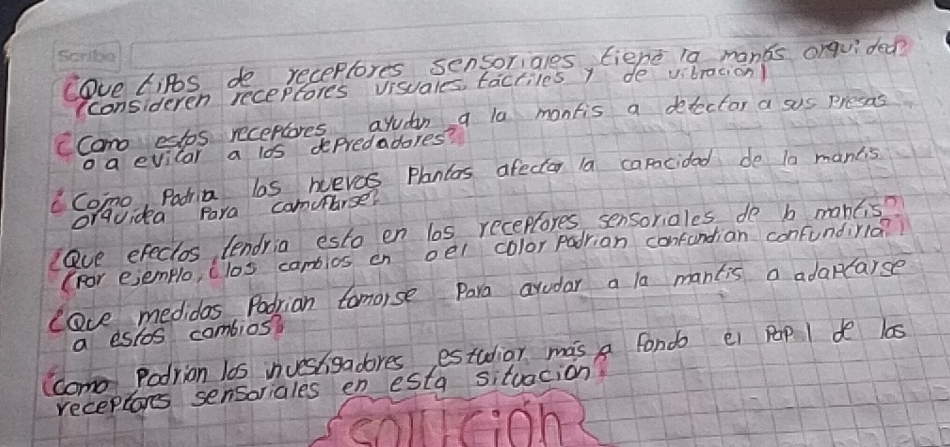 Scribe
¿Que tipos de receptores sensoriales tiene la mantis orquidea?
(consideren receptores visuales, tactiles y de vibracion)
¿Como estos receptores ayudan a la mantis a detectar a sus presas
o a evitar a los depredadores?
¿Como Podria las nuevas Plantas afectar la capacidad de la mantis
orquidea Para camuflarse?
¿Que efectos tendria esto en los receptores sensoriales de la mantis?
(Por ejemplo, ¿los cambios en el color Padrian confundian confundirla?)
¿Que medidas Podrian tomarse Para ayudar a la mantis a adaptarse
a estos cambios?
¿Como Podrian los investigadores estudiar más a fondo el Papl de los
receptores sensoriales en esta situacion?
solucion